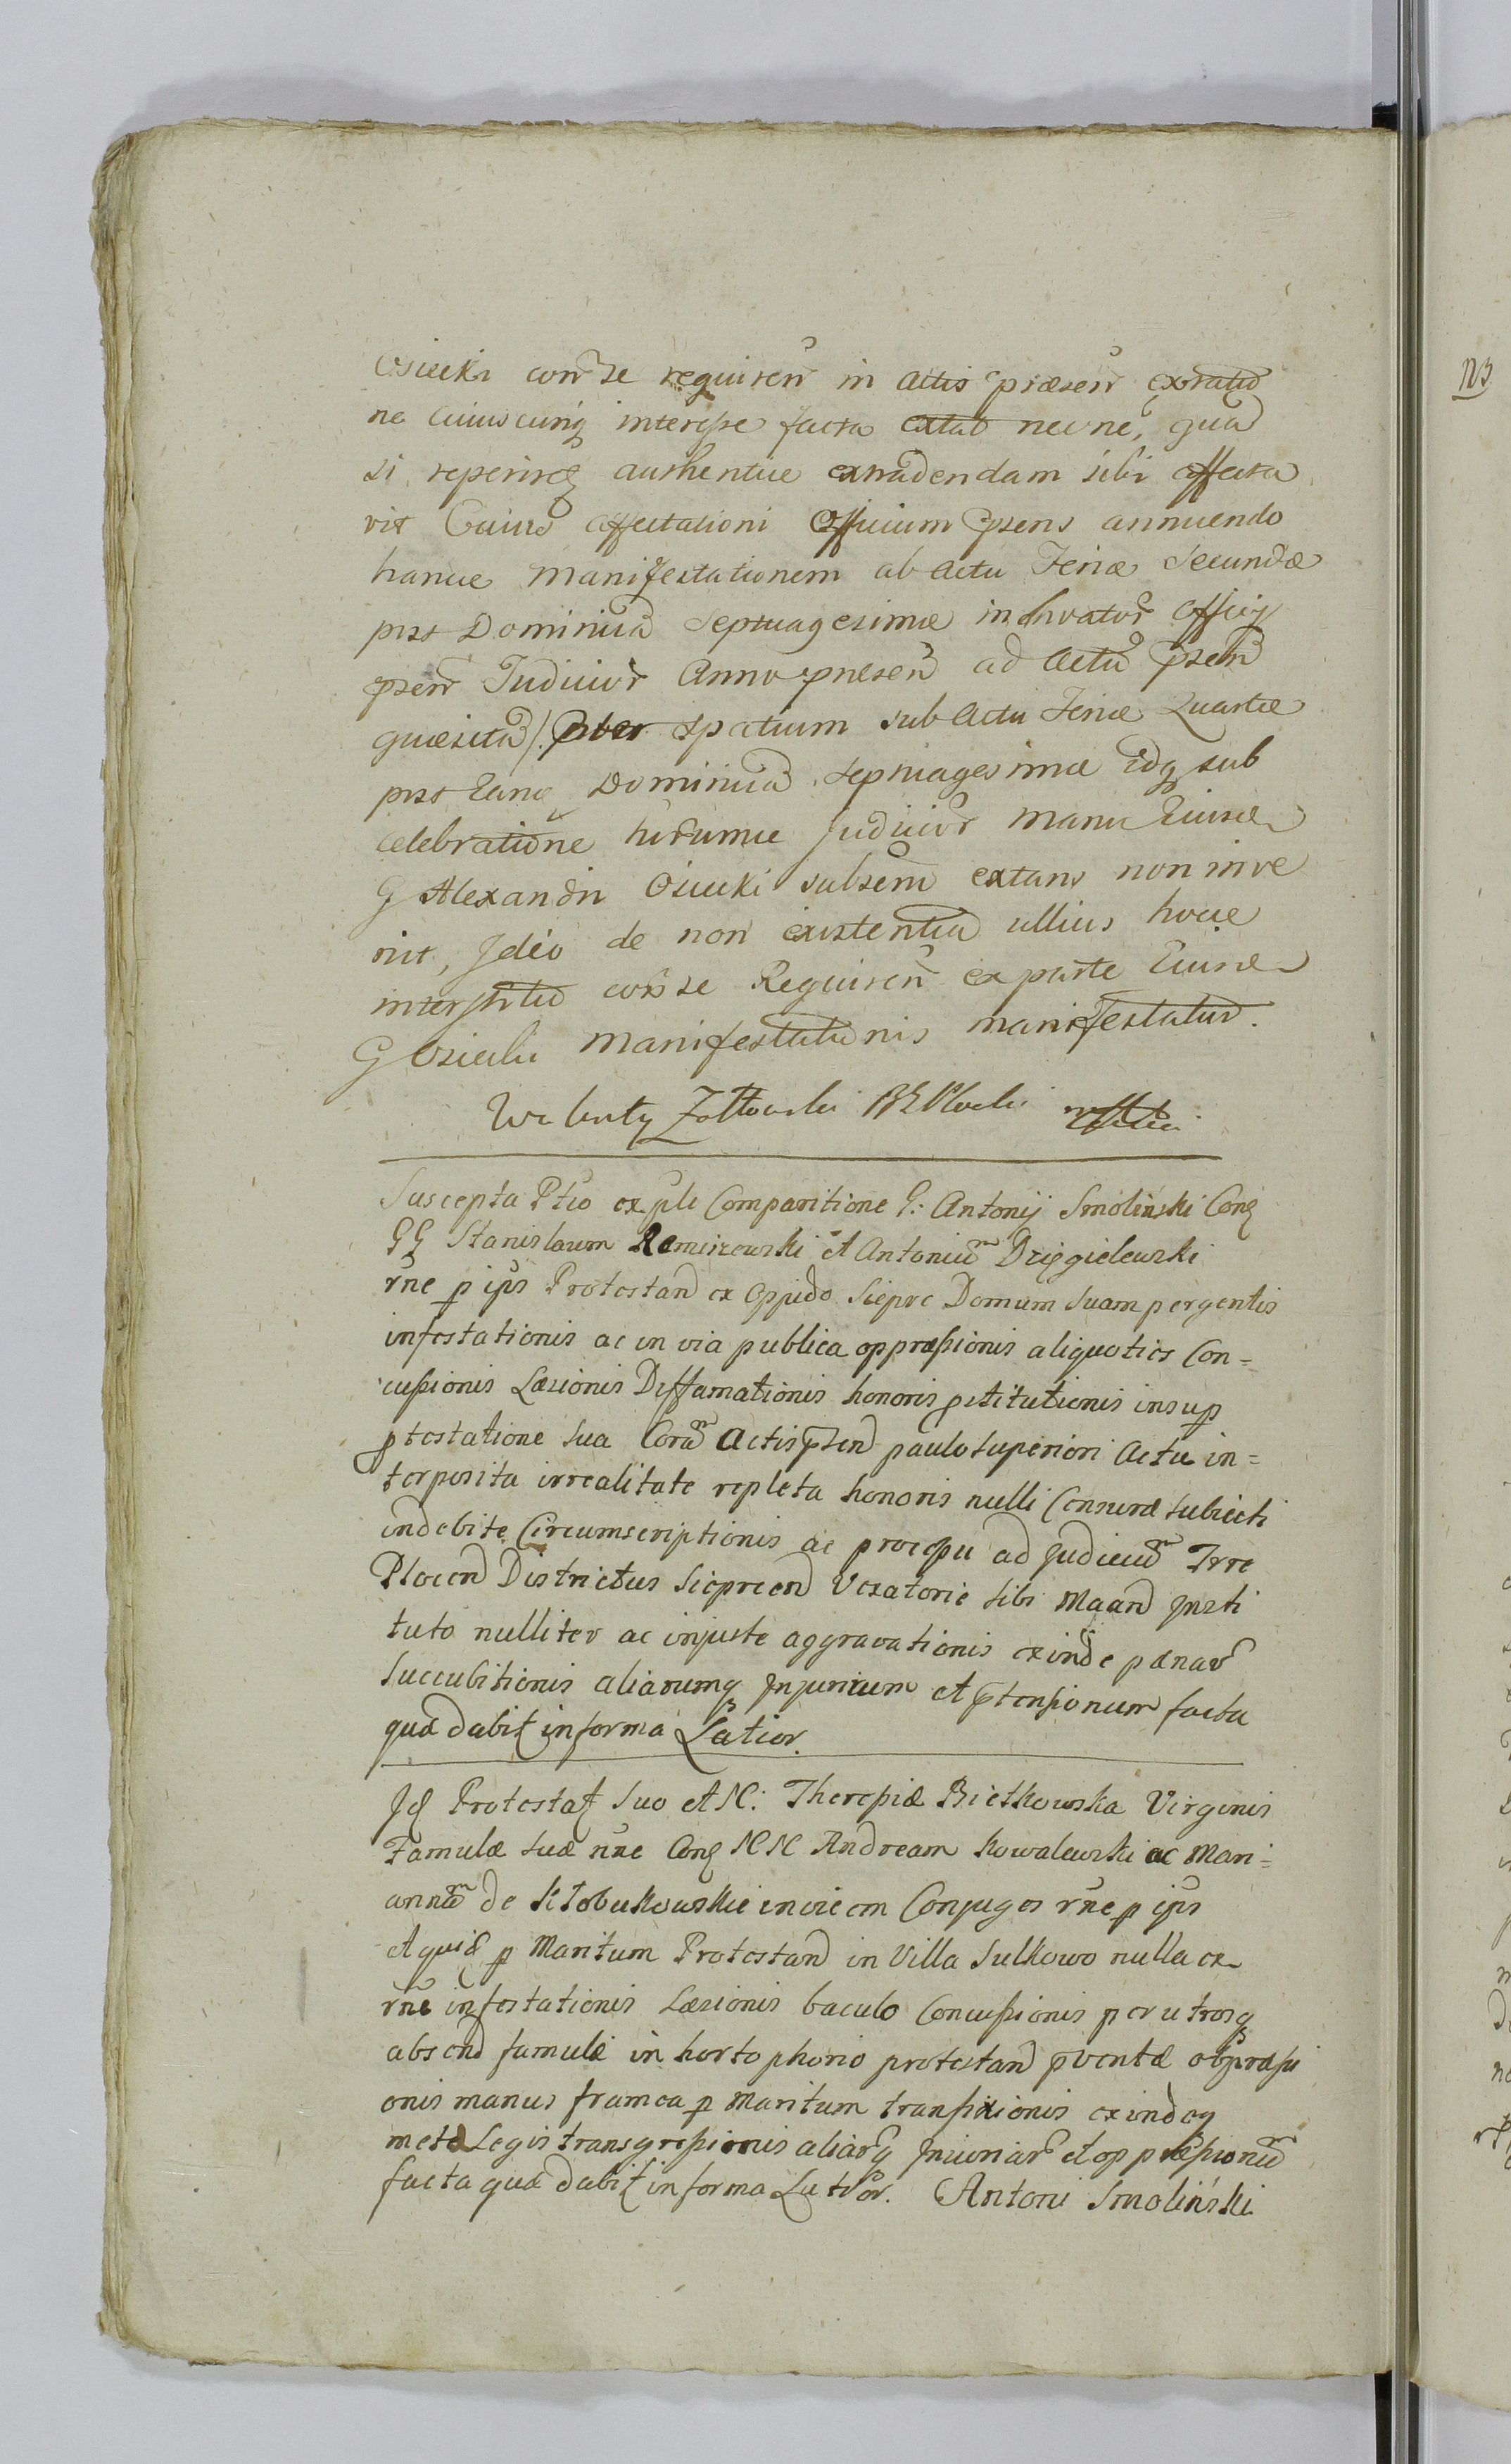 Osiecki conr se requiren in actis præsen extratio
ne cuiuscunq interesse facta extat necne, qua
si reperireq authentice extradendam sibi affecta
vit Cuius affectationi Officium psens annuendo
hance manifestationem ab actu Feriæ Secundæ
post Dominica Septuagesimæ inchoator Officij
psen Judicior Anno præsen ad Actu psen
quæsita) spatium sub Actu Feriæ Quartæ
post Eanq Dominica Septuagesimæ Idq sub
celebratione horumce Judicior manu Eiusde
G Alexandri Osiecki subscm extans non inve
nit, Ideo de non existentia ullius hocce
conr se Requiren ex parte Eiusde
G Osiecki manifestationis manifestatur.
Woluty Zołtowski
Suscepta Ptio ex psli Comparitione G: Antonij Smoliński Conq
GG Stanislaum Remiszewski et Antoniu Dzięgielewski
rne p ijus Protestan ex Oppido Siepre Domum Suam pergentis
infestationis ac in via publica oppræssionis aliquoties Con=
cussionis Læsionis Diffamationis honoris pstitutionis insup
ptestatione sua Cora Actis psen paulo superiori Actu in=
terposita irrealitate repleta honoris nulli Censuræ subiecti
indebite Circumscriptionis ac processu ad Judiciu Trre
Plocen Districtus Sieprcen Vexatorie sibi Maand Insti
tuto nulliter ac injuste aggravationis exinde pænar
succubitionis aliarumq Injurium et ptensionum facta
qua dabit in forma Latior.
Id Protestat suo et N: Theressiæ Bietkowska Virginis
Famulæ suæ nne Conq NN Andream Kowalewski ac Mari=
anna de Kłobukowskie invicem Conjuges rne p ijus
et quid p Maritum Protestan in Villa Sulkowo nulla ex
rne infestationis Læsionis baculo Concussionis per utrosq
absen famulæ in horto phorio protestan pventæ obpræssi
onis manus framea p Maritum transfixionis exindeq
metæ Legis transgressionis aliarq Iniuriar et oppræssionu
facta qua dabit in forma Latior. Antoni Smoliński